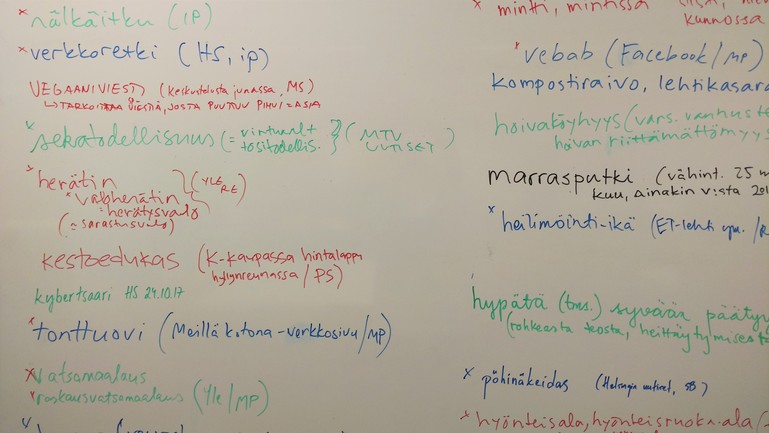 × nälkäitku (IP)
× verkkoretki (HS, ip)
VEGAANIVIESTI (keskustelusta junassa, MS)
↳ TARKOITTAA VIESTIÄ, JOSTA PUUTTUU PIHVI = ASIA
× sekatodellisuus (= virtuaalit + tositodellis. } (MTV UUTISET)
× herätin
× valoherätin } (YLE RE)
= herätysvalo
(= sarastusvalo)
kestoedukas (K-kaupassa hintalappu
hyllynreunassa / PS)
kybertsaari HS 24.10.17
× tonttuovi (Meillä kotona -verkkosivu/MP)
× vatsamaalaus
× raskausvatsamaalaus (Yle/MP)
× mintti, mintissä
kunnossa
× vebab (Facebook/MP)
kompostiraivo, lehtikasara
hoivaköyhyys (vars. vanhust
hoivan riittämättömyys
marrasputki (vähint. 25 m
kuu, ainakin v:sta 201
× heilimöinti-ikä (ET-lehti
hypätä (tms.) syvään päätyy
(rohkeasta teosta, heittäytymisest
× pöhinäkeidas (Helsingin uutiset, SB)
× hyönteisala, hyönteisruoka-ala